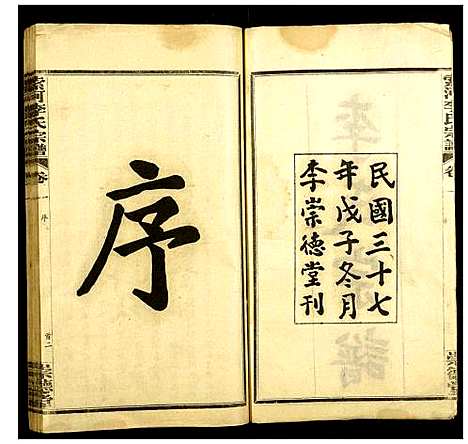 李氏宗譜
卷一
民國三十七
年戊子冬月
李崇德堂刊
序
河李氏宗譜
卷一
序
首二